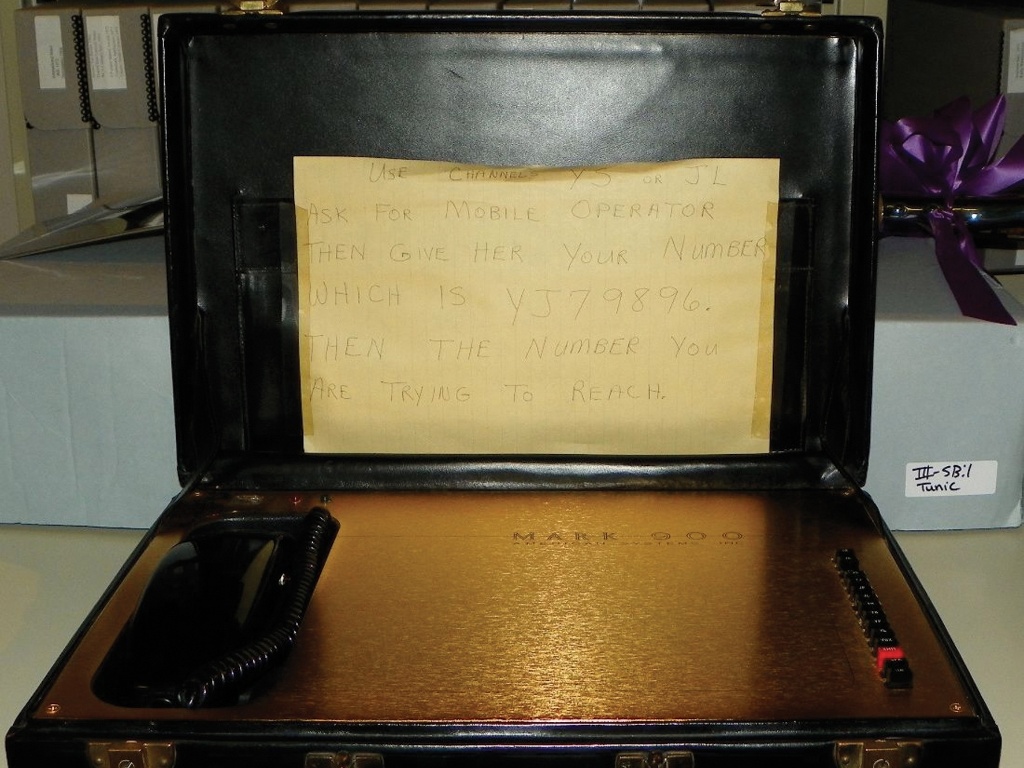 USE CHANNELS YS OR JL
ASK FOR MOBILE OPERATOR
THEN GIVE HER YOUR NUMBER
WHICH IS YJ79896.
THEN THE NUMBER YOU
ARE TRYING TO REACH.
III-SB:1
Tunic
MARK 900
AMERICAN SYSTEMS INC